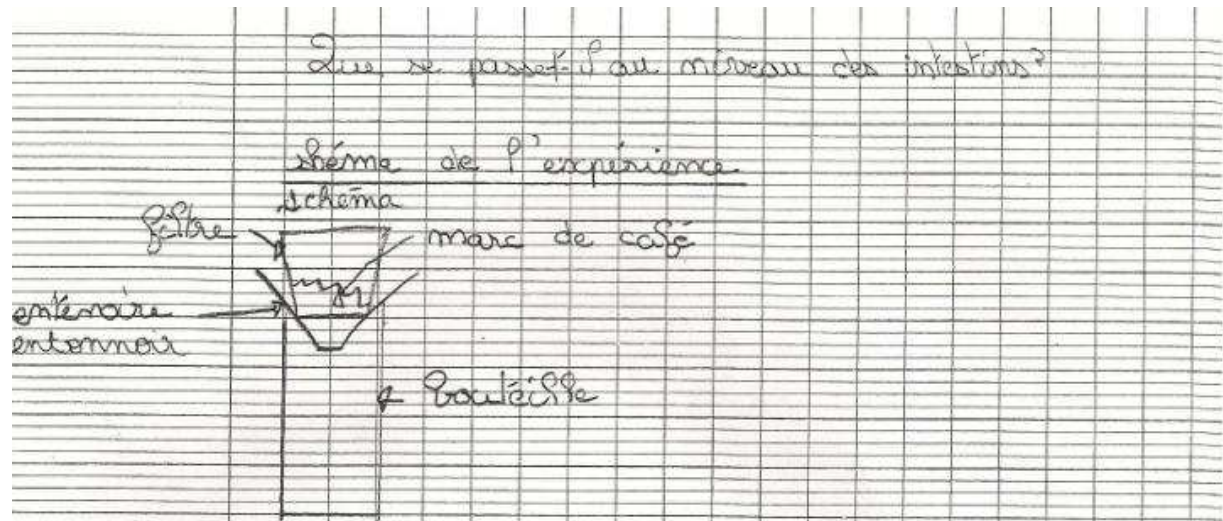 Que se passe-t-il au niveau des intestins?
shéma de l'expérience
schéma
filtre
marc de café
entenoire
entonnoir
boutéille